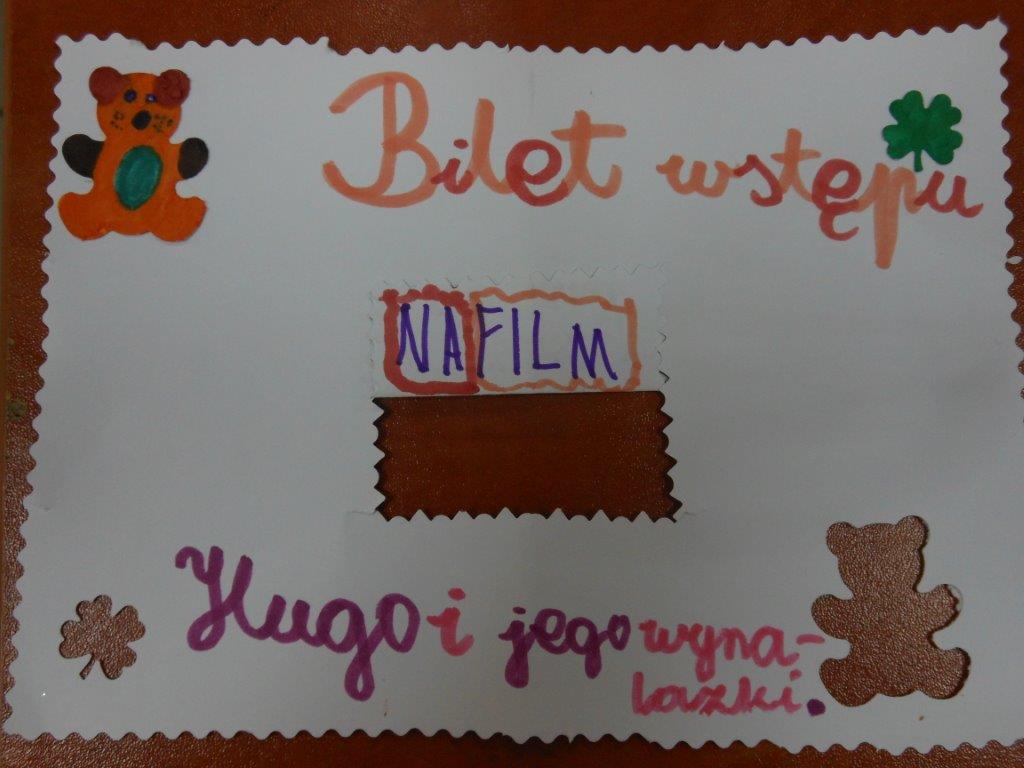 Bilet wstępu
NA FILM
Hugo i jego wyna-
lazki.